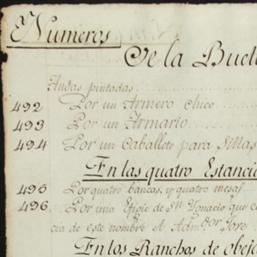 Numeros
De la Buel
Andas pintadas
492 Por un Armero Chico
493 Por un Armario
494 Por un Caballete para Sillas
En las quatro Estancia
495 Por quatro bancas, y quatro mesas
496 Por una Efigie de Sn. Ygnacio que e
cia de este nombre el Admor. Jore
En los Ranchos de obeje